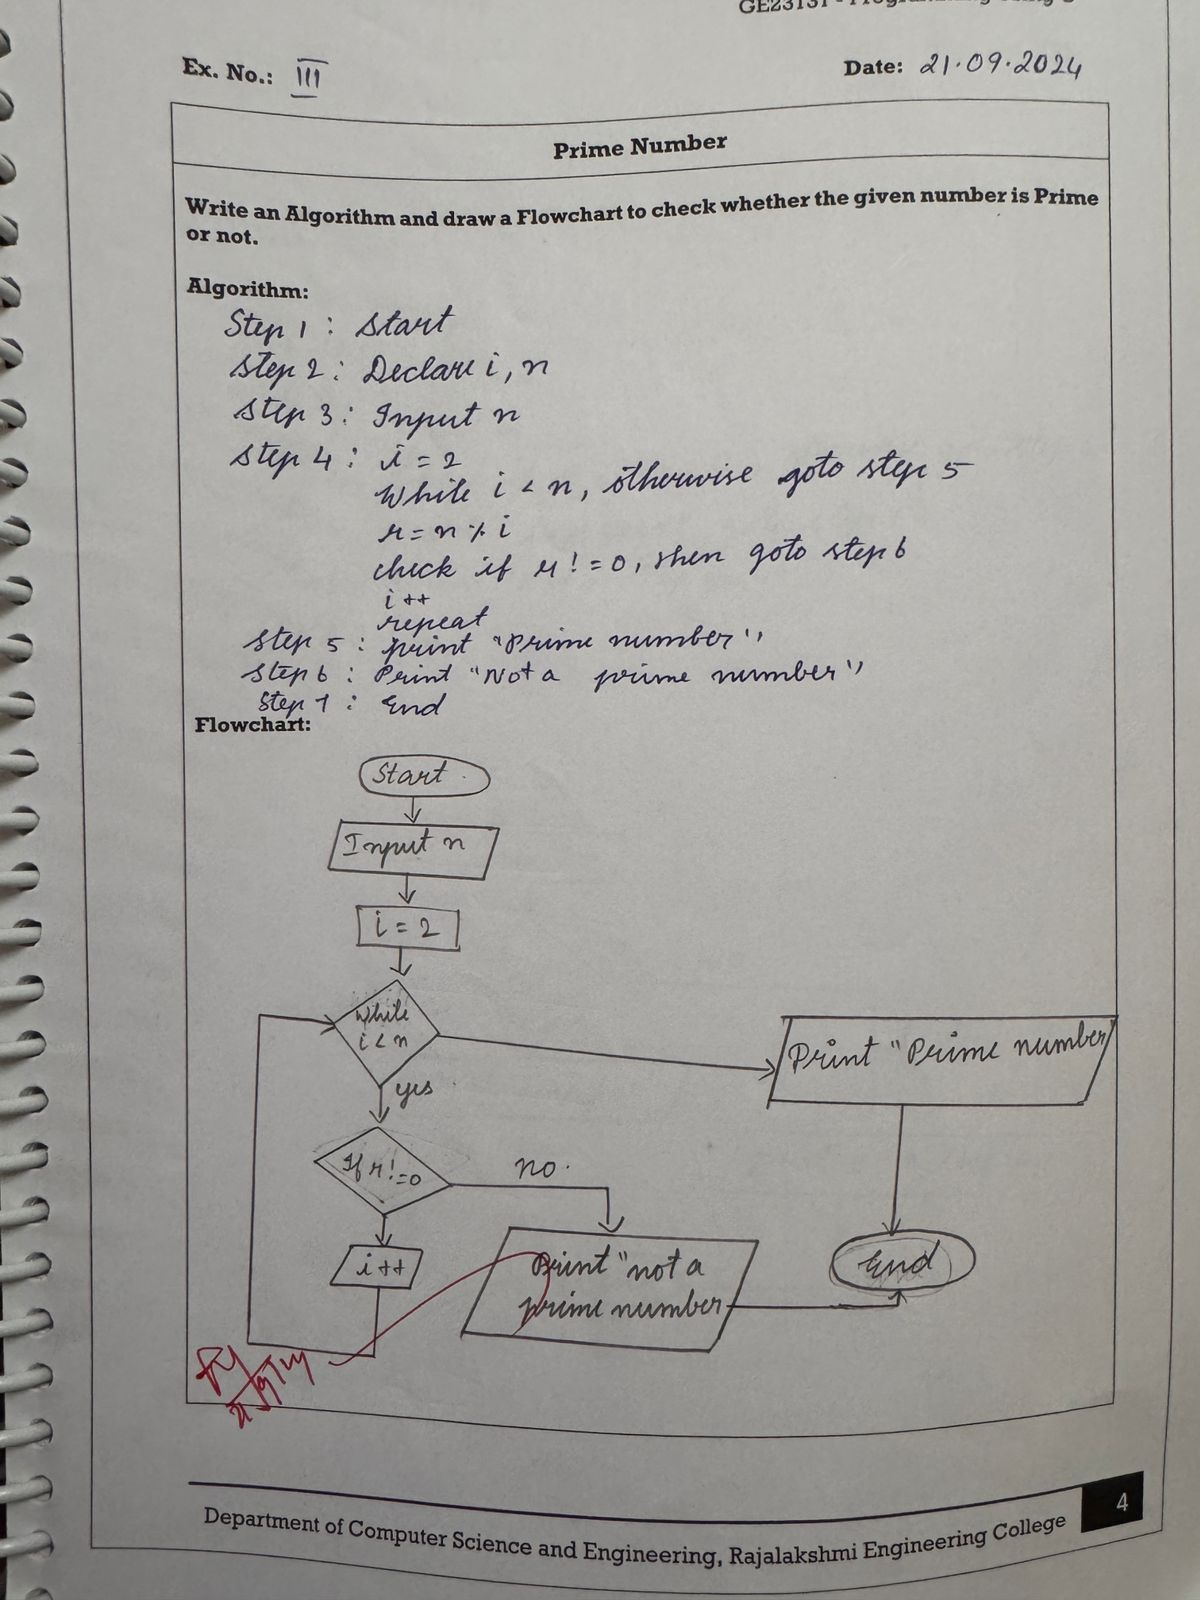 Ex. No.: III
Date: 21.09.2024
Prime Number
Write an Algorithm and draw a Flowchart to check whether the given number is Prime
or not.
Algorithm:
Step 1 : Start
Step 2 : Declare i, n
Step 3 : Input n
Step 4 : i = 2
While i < n, otherwise goto step 5
r = n % i
check if r != 0, then goto step 6
i ++
repeat
Step 5 : print "Prime number"
Step 6 : Print "Not a prime number"
Step 7 : End
Flowchart:
Start
Input n
i = 2
While
i < n
yes
Print "Prime number
If r != 0
no.
i ++
Print "not a
prime number
End
Department of Computer Science and Engineering, Rajalakshmi Engineering College
4